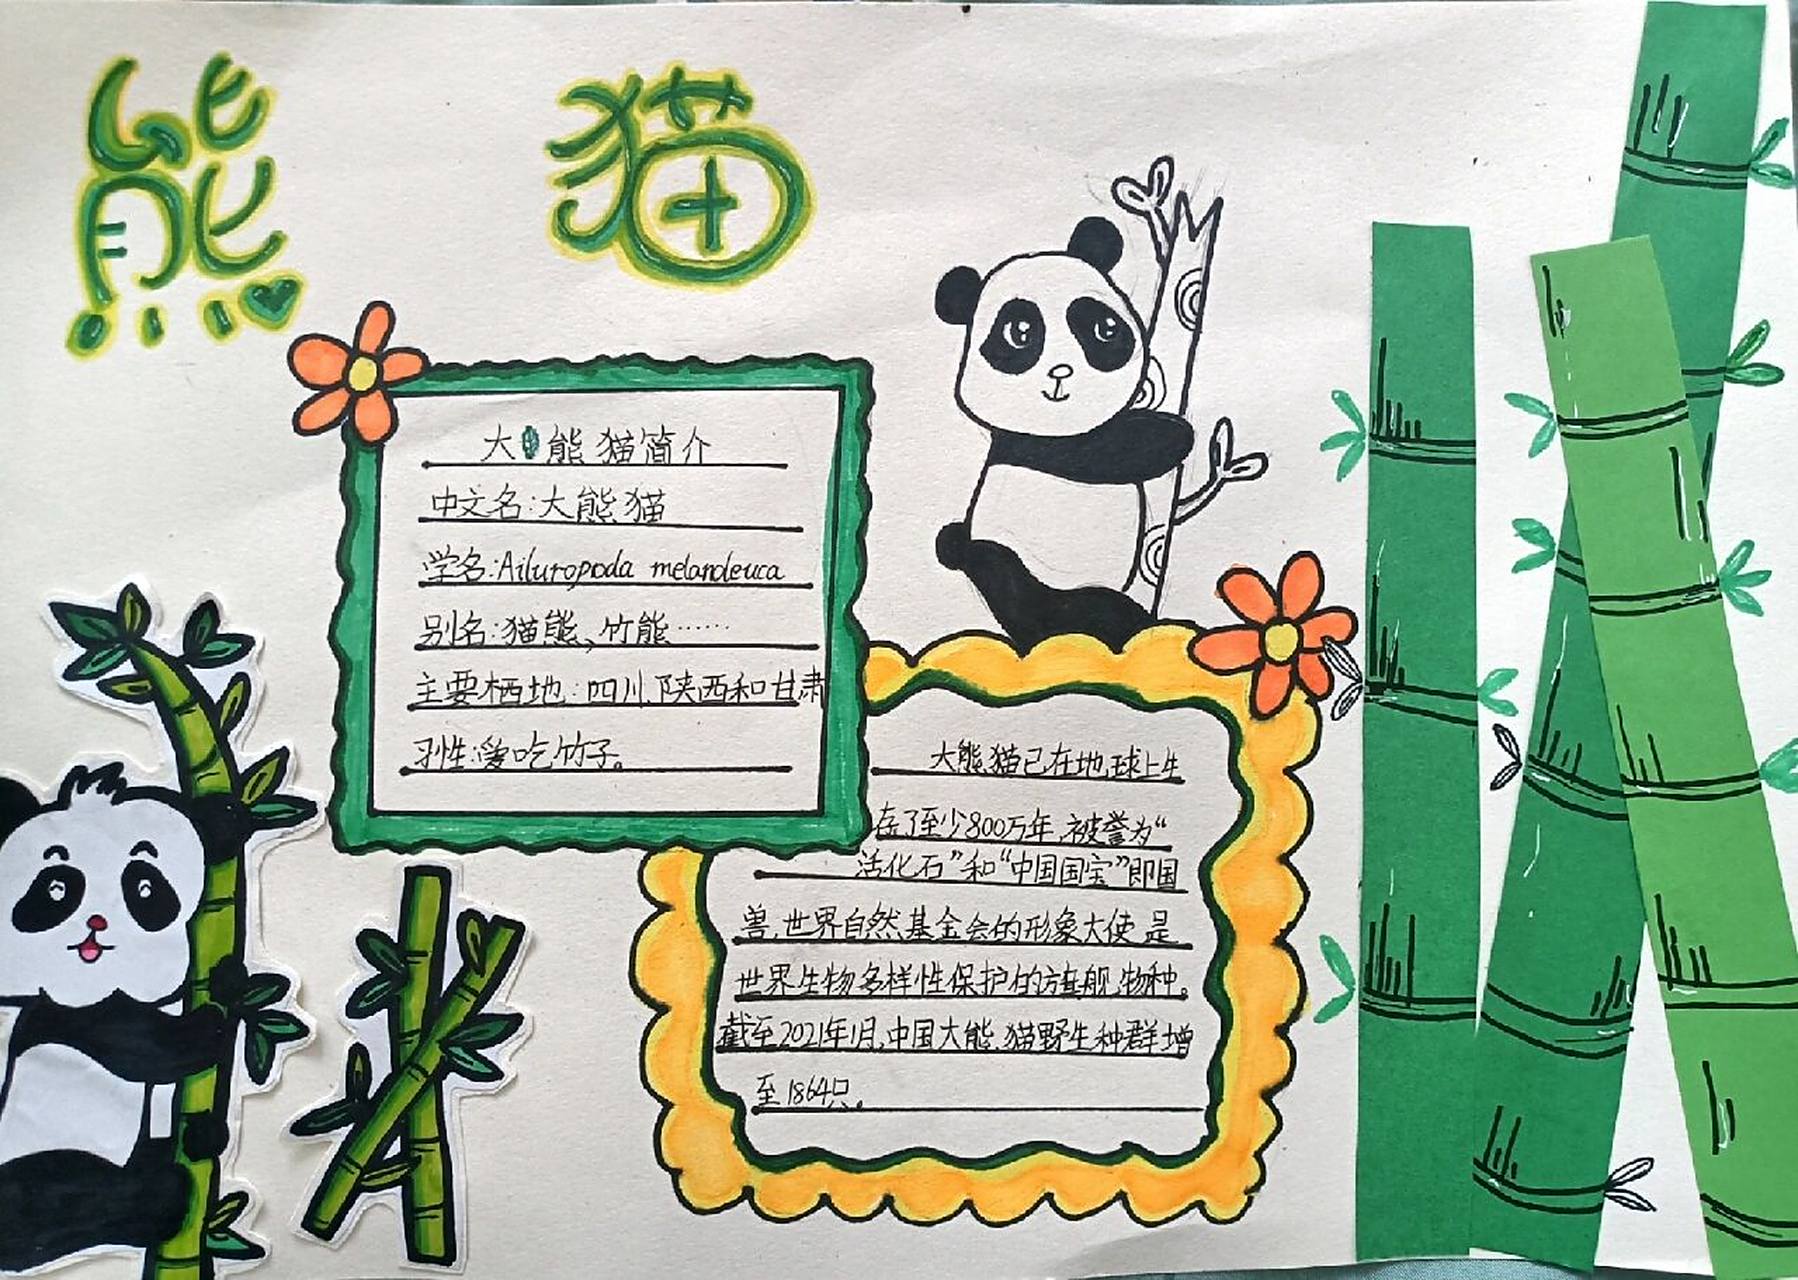 熊猫
大熊猫简介
中文名:大熊猫
学名:Ailuropoda melanoleuca
别名:猫熊、竹熊……
主要栖地:四川、陕西和甘肃
习性:爱吃竹子。
大熊猫已在地球上生
存了至少800万年,被誉为“
活化石”和“中国国宝”即国
兽,世界自然基金会的形象大使,是
世界生物多样性保护的旗舰物种。
截至2021年1月,中国大熊猫野生种群增
至1864只。